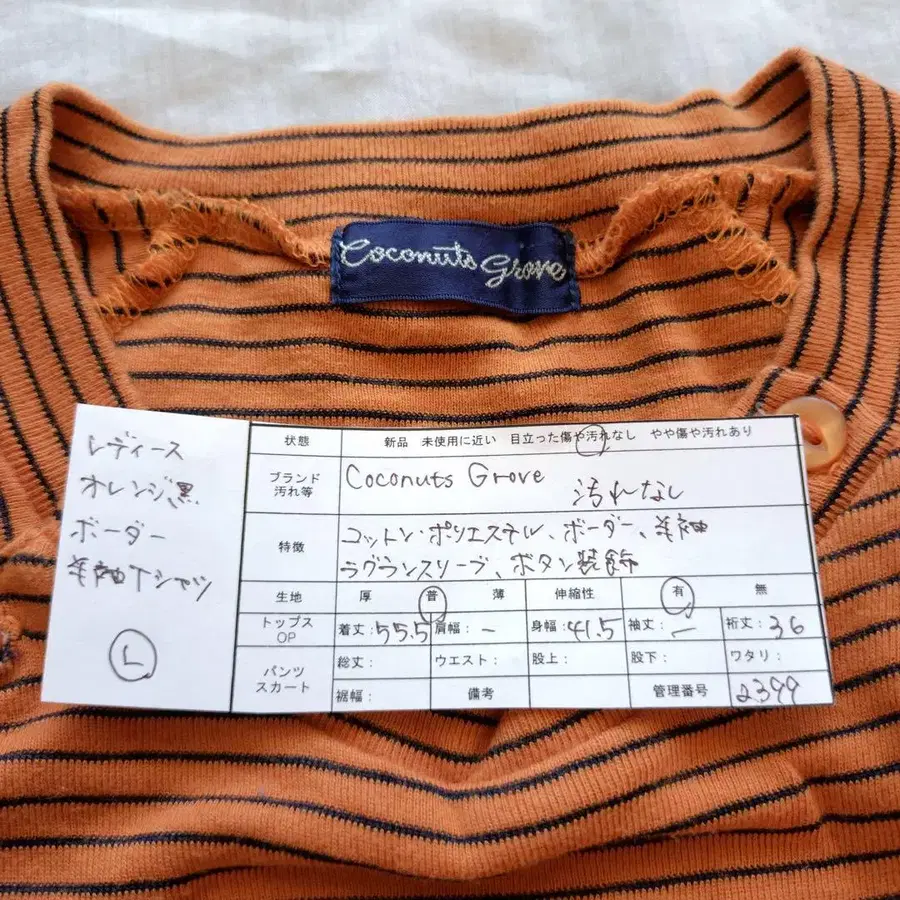 Coconuts Grove
レディース
オレンジ黒
ボーダー
半袖Tシャツ
L
状態 新品 未使用に近い 目立った傷や汚れなし やや傷や汚れあり
ブランド
汚れ等
Coconuts Grove
汚れなし
特徴
コットン・ポリエステル、ボーダー、半袖
ラグランスリーブ、ボタン装飾
生地 厚 普 薄 伸縮性 有 無
トップス
OP
着丈:55.5 肩幅:- 身幅:41.5 袖丈:- 裄丈:36
パンツ
スカート
総丈: ウエスト: 股上: 股下: ワタリ:
裾幅: 備考 管理番号 2399